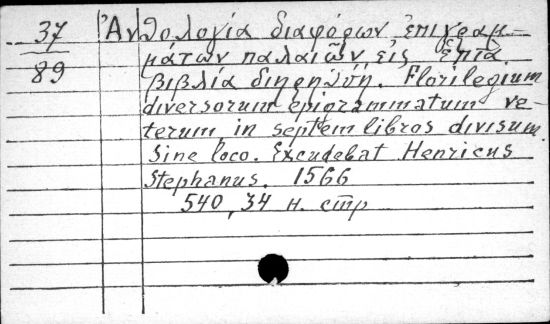 37 Ἀνθολογία διαφόρων ἐπιγραμ-
μάτων παλαιῶν εἰς ἑπτὰ
89 βιβλία διῃρημένη. Florilegium
diversorum epigrammatum ve-
terum in septem libros divisum.
Sine loco. Excudebat Henricus
Stephanus. 1566
540, 34 н. стр